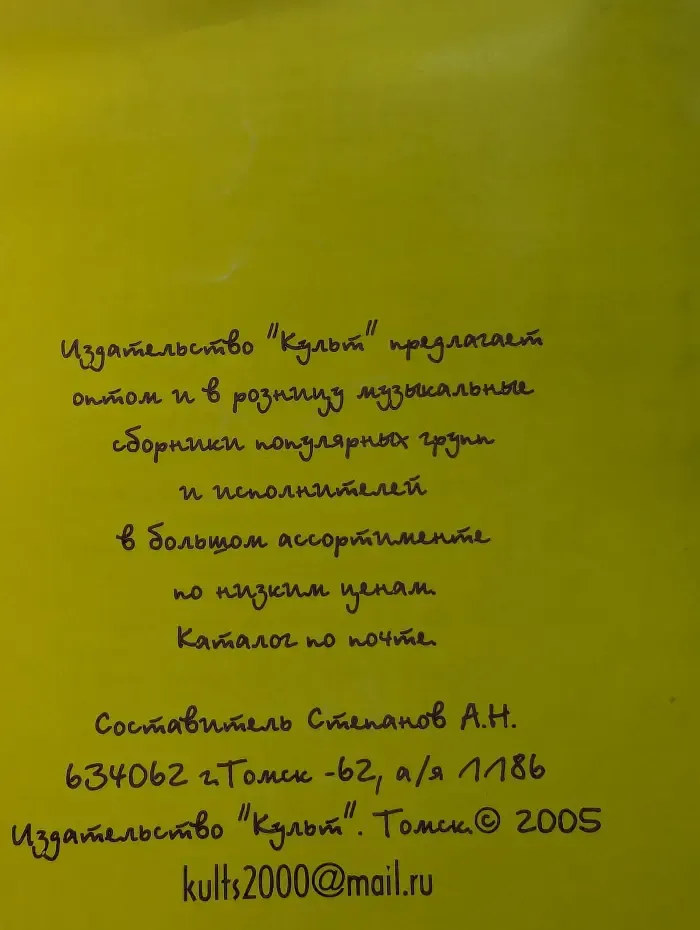 Издательство "Культ" предлагает
оптом и в розницу музыкальные
сборники популярных групп
и исполнителей
в большом ассортименте
по низким ценам.
Каталог по почте.
Составитель Степанов А.Н.
634062 г.Томск -62, а/я 1186
Издательство "Культ". Томск.© 2005
kults2000@mail.ru